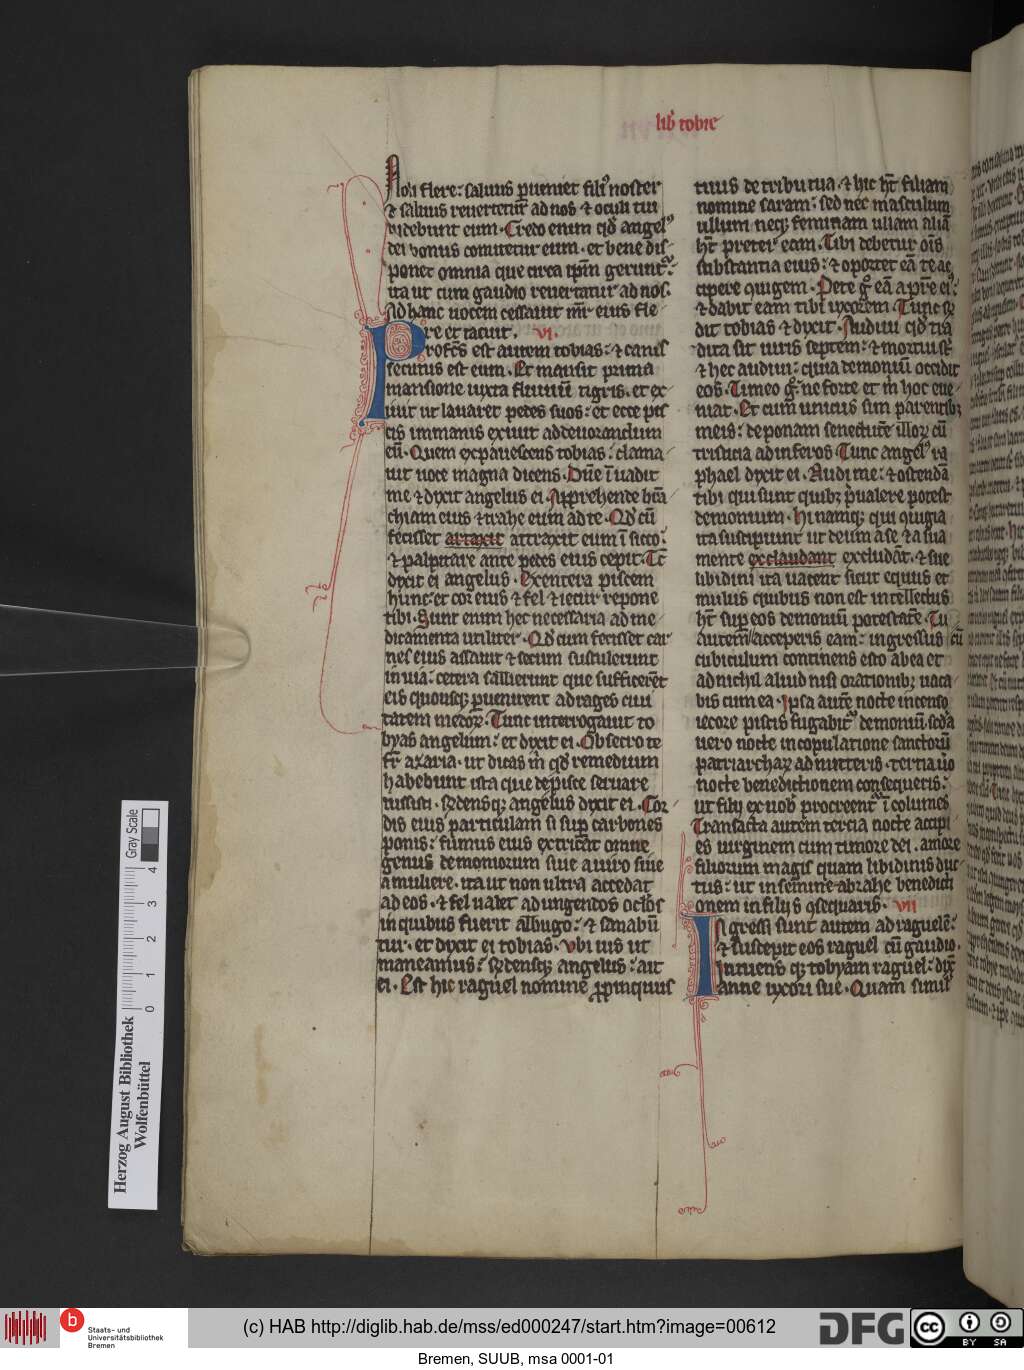 lib̄ tobie
Noli flere: saluus ꝑueniet fili⁹ noster
⁊ saluus reuertetur̄ ad nos ⁊ oculi tui
videbunt eum. Credo enim qd̄ angel⁹
dei bonus comitetur eum. et bene dis-
ponet omnia que circa ip̄m gerunt᷑.
ita ut cum gaudio reuertatur ad nos.
Ad hanc uocem cessauit mr̄ eius fle-
re et tacuit. VI.
Profcs̄ est autem tobias: ⁊ canis
secutus est eum. Et mansit prima
mansione iuxta fluuiū tigris. et ex-
iuit ut lauaret pedes suos: et ecce pis
cis immanis exiuit ad deuorandum
eū. Quem expauescens tobias: clama-
uit uoce magna dicens. Dn̄e ī uadit
me ⁊ dixit angelus ei. Apprehende brā
chiam eius ⁊ trahe eum ad te. Qd̄ cū
fecisset attraxit attraxit eum ī sicco:
⁊ palpitare ante pedes eius cepit. Tc̄
dixit ei angelus. Exentera piscem
hunc: et cor eius ⁊ fel ⁊ iecur repone
tibi. Sunt enim hec necessaria ad me-
dicamenta utiliter. Qd̄ cum fecisset car-
nes eius assauit ⁊ secum sustulerunt
in uiā: cetera sallierunt que sufficerēt
eis quousqꝫ ꝑuenirent ad rages ciui
tatem medoꝝ. Tunc interrogauit to
byas angelum: et dixit ei. Obsecro te
fr̄ azaria. ut dicas m̄ qd̄ remedium
habebunt ista que de pisce seruare
iussisti. Rn̄densqꝫ angelus dixit ei. Cor-
dis eius particulam si suꝑ carbones
ponis: fumus eius extricat omne
genus demoniorum siue a uiro siue
a muliere. ita ut non ultra accedat
ad eos. ⁊ fel ualet ad ungendos oclōs
in quibus fuerit albugo: ⁊ sanabū
tur. et dixit ei tobias. vbi uis ut
maneamus: Rn̄densqꝫ angelus: ait
ei. Est hic raguel nomine ꝓpinquus
tuus de tribu tua. ⁊ hic ht̄ filiam
nomine saram: sed nec masculum
ullum neqꝫ feminam ullam aliā
ht̄ preter eam. Tibi debetur ōis
substantia eius: ⁊ oportet eā te ac
cipere coniugem. Pete g° eā a pr̄e ei⁹:
⁊ dabit eam tibi uxorem. Tunc rn̄
dit tobias ⁊ dixit. Audiui qd̄ tra
dita sit uiris septem: ⁊ mortui st̄.
⁊ hec audiui: quia demoniū occidit
eos. Timeo g°: ne forte et m̄ hoc eue-
niat. Et cum unicus sim parentibꝫ
meis: deponam senectutē illoꝝ cū
tristicia ad inferos. Tunc angel⁹ ra
phael dixit ei. Audi me: ⁊ ostendā
tibi qui sunt quibꝫ p̄ualere potest
demonium. Hi namqꝫ qui ꝯiugia
ita suscipiunt ut deum a se ⁊ a sua
mente exclaudant excludāt. ⁊ sue
libidini ita uacent sicut equus et
mulus quibus non est intellectus
ht̄ suꝑ eos demoniū potestatē. Tu
autem acceperis eam: ingressus cū
cubiculum continens esto ab ea et
ad nichil aliud nisi orationibꝫ uaca-
bis cum ea. Ipsa autē nocte incenso
iecore piscis fugabit᷑ demoniū. scd̄a
uero nocte in copulatione sanctorū
patriarchaꝝ admitteris. tertia uō
nocte benedictionem consequeris:
ut filij ex uob̄ procreent᷑ ī columes
Transacta autem tercia nocte accipi-
es uirginem cum timore dei. amore
filiorum magis quam libidinis duc
tus: ut in semine abrahe benedicti
onem in filijs ꝯsequaris. VII
Ingressi sunt autem ad raguelē:
⁊ suscepit eos raguel cū gaudio.
Intuens qꝫ tobyam raguel: dix̄
anne uxori sue. Quam simil⁹
Gray Scale
0 1 2 3 4
Herzog August Bibliothek
Wolfenbüttel
b
Staats- und
Universitätsbibliothek
Bremen
(c) HAB http://diglib.hab.de/mss/ed000247/start.htm?image=00612
DFG
cc BY SA
Bremen, SUUB, msa 0001-01